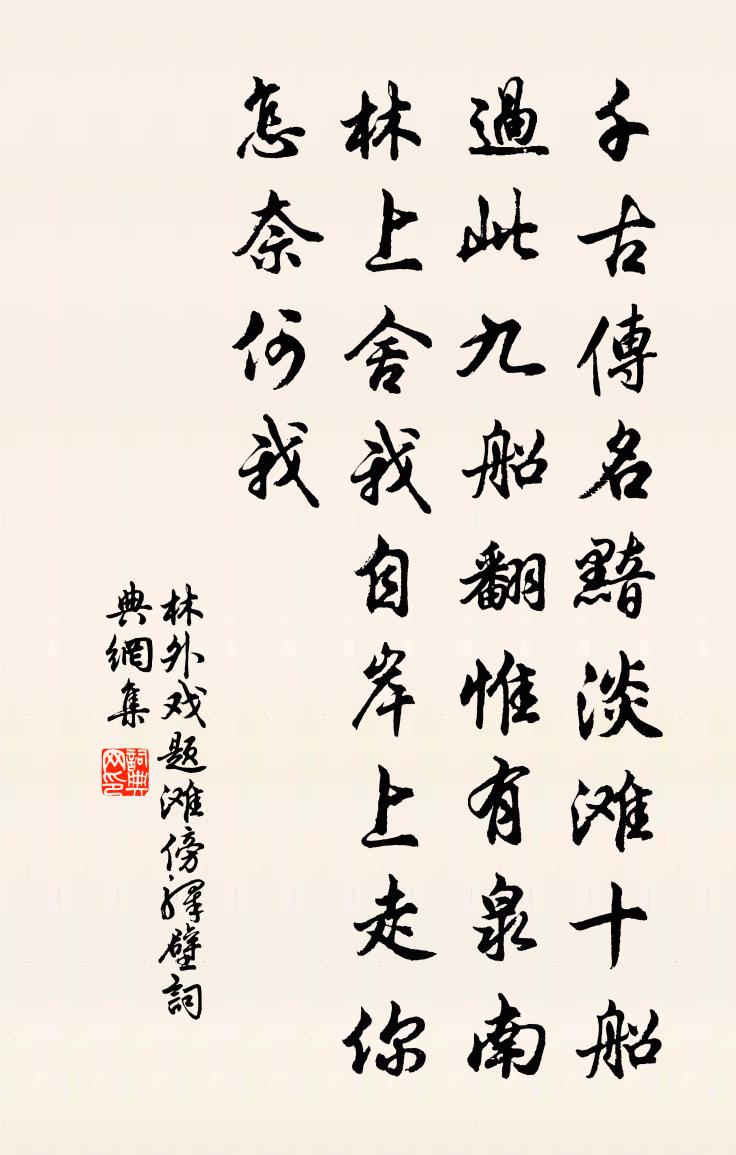 千古傳名黯淡滩十船
過此九船翻惟有泉南
林上舍我自岸上走你
怎奈何我
林外戏题滩傍驛壁词
典網集
詞典网印